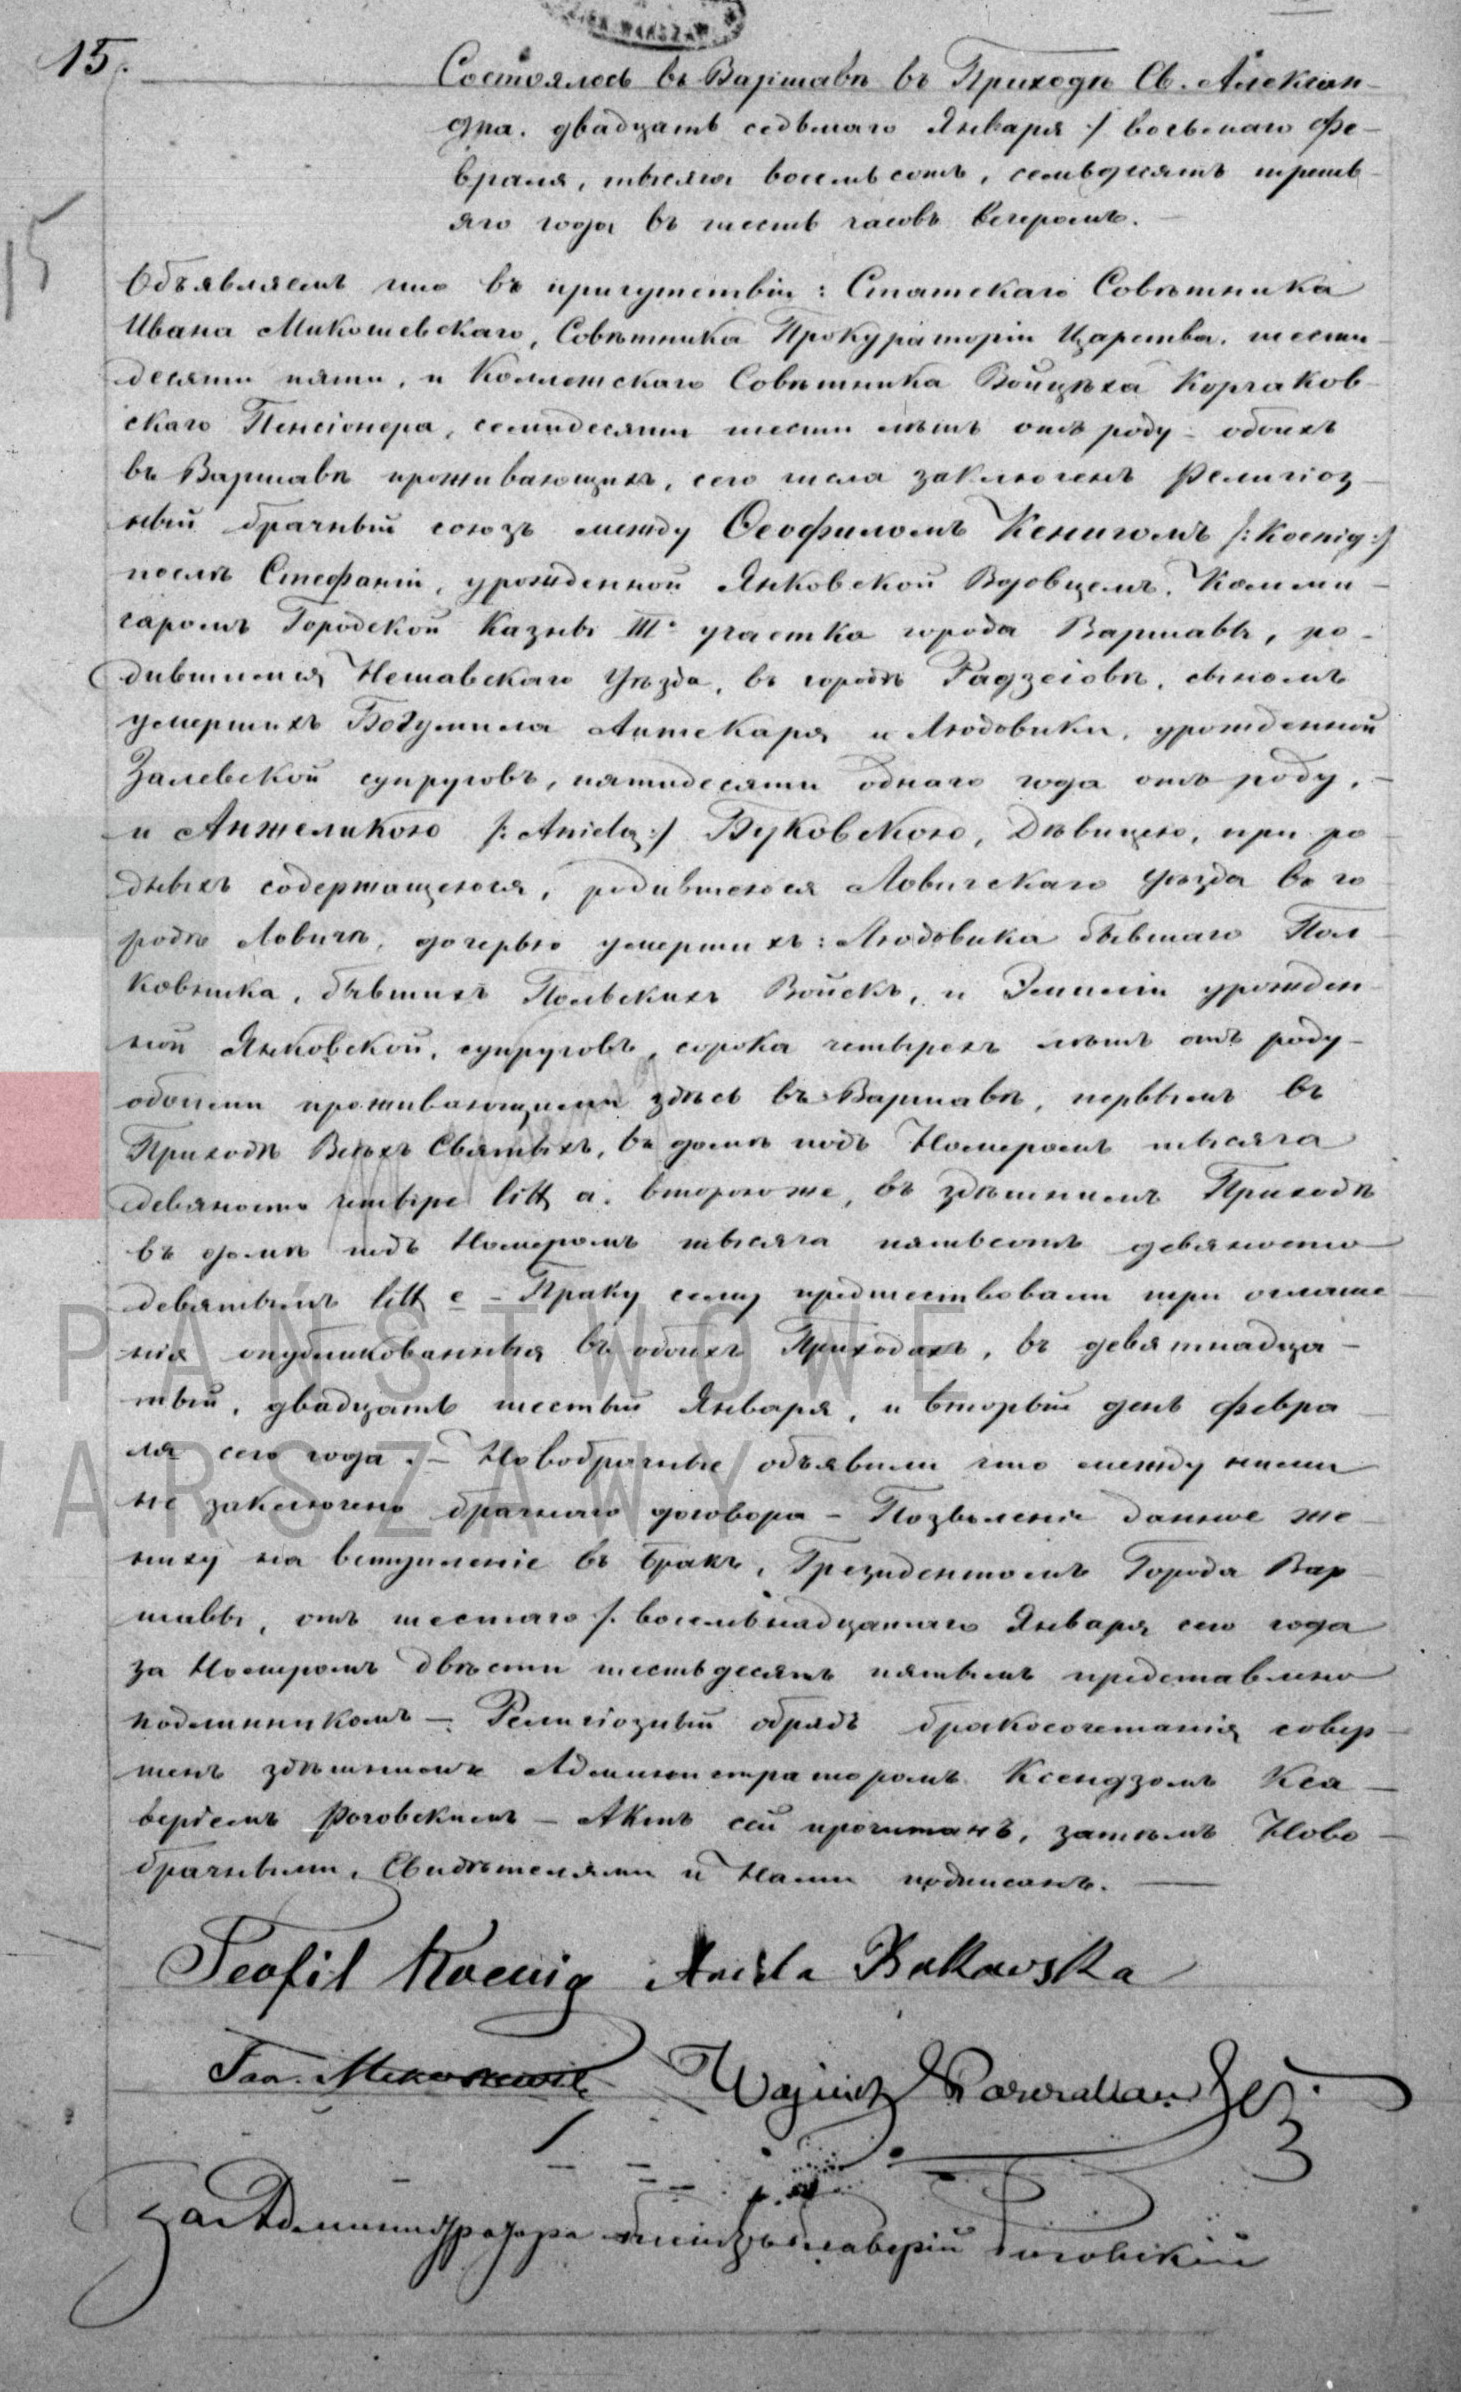 15.
Состоялось въ Варшавѣ въ Приходѣ Св. Алексан-
дра. двадцать седьмаго Января / восьмаго Фе-
враля, тысяча восемьсотъ, семьдесятъ треть-
яго года въ шесть часовъ вечеромъ. —
15
Объявляемъ что въ присутствіи: Статскаго Совѣтника
Ивана Микошевскаго, Совѣтника Прокураторіи Царства, шести-
десяти пяти, и Коллежскаго Совѣтника Войцѣха Корчаков-
скаго Пенсіонера, семидесяти шести лѣтъ отъ роду - обоихъ
въ Варшавѣ проживающихъ, сего числа заключенъ Религіоз-
ный брачный союзъ между Ѳеофиломъ Кенигомъ /:Koenig:/
послѣ Стефаніи, урожденной Янковской Вдовцемъ,
Городской Казны III° участка города Варшавы, ро-
дившимся Нешавскаго Уѣзда, въ городѣ Радзеіовѣ, сыномъ
умершихъ Богумила Аптекаря и Людовики, урожденной
Залевской супруговъ, пятидесяти однаго года отъ роду, —
и Анжеликою /: Aniela :/ Буковскою, Дѣвицею, при ро-
дныхъ содержащеюся, родившеюся Ловичскаго Уѣзда въ го-
родѣ Ловичѣ, дочерью умершихъ: Людовика бывшаго Пол-
ковника, бывшихъ Польскихъ Войскъ, и Эмиліи урожден-
ной Янковской, супруговъ, сорока четырехъ лѣтъ отъ роду -
обоими проживающими здѣсь въ Варшавѣ, первымъ въ
Приходѣ Всѣхъ Святыхъ, въ домѣ подъ Номеромъ тысяча
девяносто четыре litt a. второюже, въ здѣшнемъ Приходѣ
въ домѣ подъ Номеромъ тысяча пятьсотъ девяносто
девятымъ litt e - Браку сему предшествовали три оглаше-
нія опубликованныя въ обоихъ Приходахъ, въ девятнадца-
тый, двадцать шестый Января, и вторый день Февра-
ля сего года. — Новобрачные объявили что между ними
не заключено брачнаго договора - Позволеніе данное же-
ниху на вступленіе въ бракъ, Президентомъ Города Вар-
шавы, отъ шестаго /. восемьнадцатаго Января сего года
за Номеромъ двѣсти шестьдесятъ пятымъ представлено
подлинникомъ — Религіозный обрядъ бракосочетанія совер-
шенъ здѣшнимъ Администраторомъ Ксендзомъ Кса-
веріемъ Роговскимъ — Актъ сей прочитанъ, затѣмъ Ново-
брачными, Свидѣтелями и Нами подписанъ. —
Teofil Koenig Aniela Bukowska
Wojciech
За Администратора Ксендзъ Ксаверій Роговскій
PAŃSTWOWE
WARSZAWY